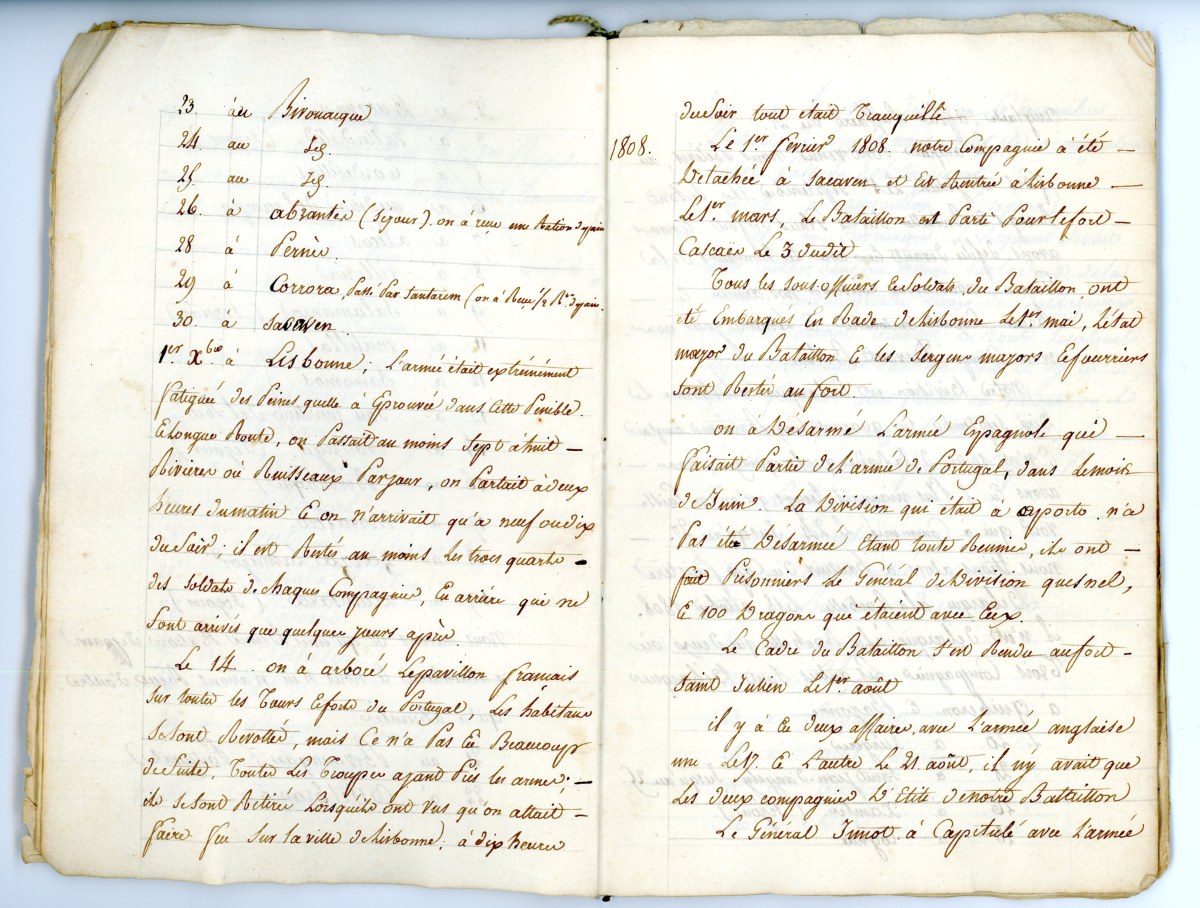 23. au Bivouacque
24. au Id.
25. au Id.
26. à abrantès (Séjour). on à reçu une Ration de pain
28 à Pernès.
29 à Corrora, Passé Par Santarem (on à Reçu 1/2 Ron de pain.
30. à Sacaven
1er Xbre à Lisbonne; L'armée était extrémément
fatiguée des Peines quelle à Eprouvée dans Cette Penible
E Longue Route, on Passait au moins Sept à huit —
Rivieres où Ruisseaux Par jour, on Partait à deux
heures du matin E on n'arrivait qu'a neuf ou dix
du Soir; il est Restés au moins Les trois quarts —
des Soldats de chaques Compagnies, En arriere qui ne
Sont arrivés que quelques jours après
Le 14. on à arboré Le pavillon francais
Sur toutes les Tours E forts du Portugal, Les habitans
Se Sont Revoltés, mais Ce n'a Pas Eu Beaucoup
de Suite. Toutes Les Troupes ayant Pris les armes; —
ils Se Sont Retiré Lorsqu'ils ont vus qu'on allait —
faire feu Sur La ville de Lisbonne; à dix heures
du Soir tout était Tranquille
1808. Le 1er fevrier 1808. notre Compagnie à été —
Détachée à Sacaven et Est Rentrée à Lisbonne —
Le 1er mars, Le Bataillon est Parti Pour Le fort —
Cascaës Le 3 dudit
Tous les Sous-officiers E Soldats du Bataillon, ont
eté Embarqués En Rade de Lisbonne Le 1er mai, L'état
major du Bataillon E les Sergens majors E fourriers
Sont Restés au fort.
on à Désarmé L'armée Espagnole qui —
faisait Partie de L'armée de Portugal, dans Le mois
de Juin. La Division qui était à oporto n'a
Pas été Désarmée Etant toute Reunie, ils ont —
fait Prisonniers Le Général de Division quesnel,
E 100 Dragons qui étaient avec Eux.
Le Cadre du Bataillon S'est Rendu au fort —
Saint Julien Le 1er août
il y à Eu deux affaires avec L'armée anglaise
une Le 17. E L'autre Le 21 août, il ny avait que
Les deux compagnies D'Elite de notre Battaillon
Le Général Junot à Capitulé avec L'armée